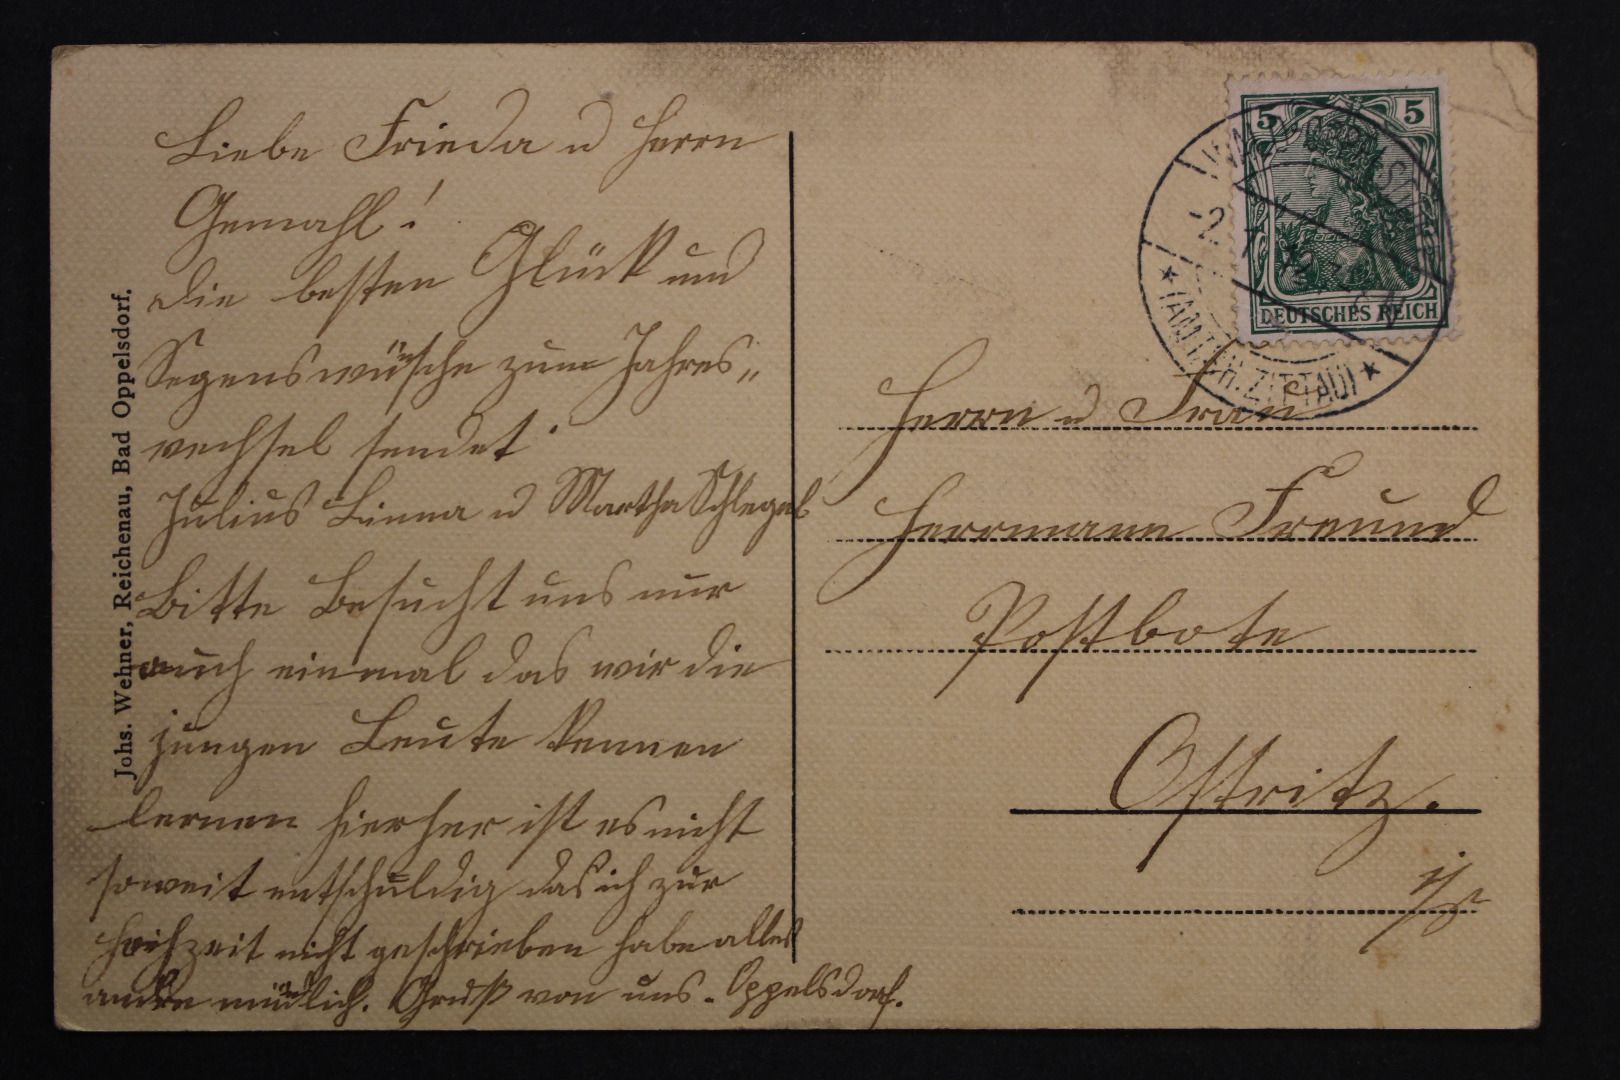 Liebe Frieda u Herrn
Gemahl!
die besten Glück und
Segenswünsche zum Jahres„
wechsel sendet
Julius Linna u Martha Schlegel
Bitte Besucht uns nur
auch einmal das wir die
jungen Leute kennen
lernen hierher ist es nicht
soweit entschuldig das ich zur
Hochzeit nicht geschrieben habe alles
andre mündlich. Gruß von uns. Oppelsdorf.
Johs. Wehner, Reichenau, Bad Oppelsdorf.
5 5
DEUTSCHES REICH
(AMTSH. ZITTAU)
Herrn u Frau
Herrmann Freund
Postbote
Ostritz.
i/S